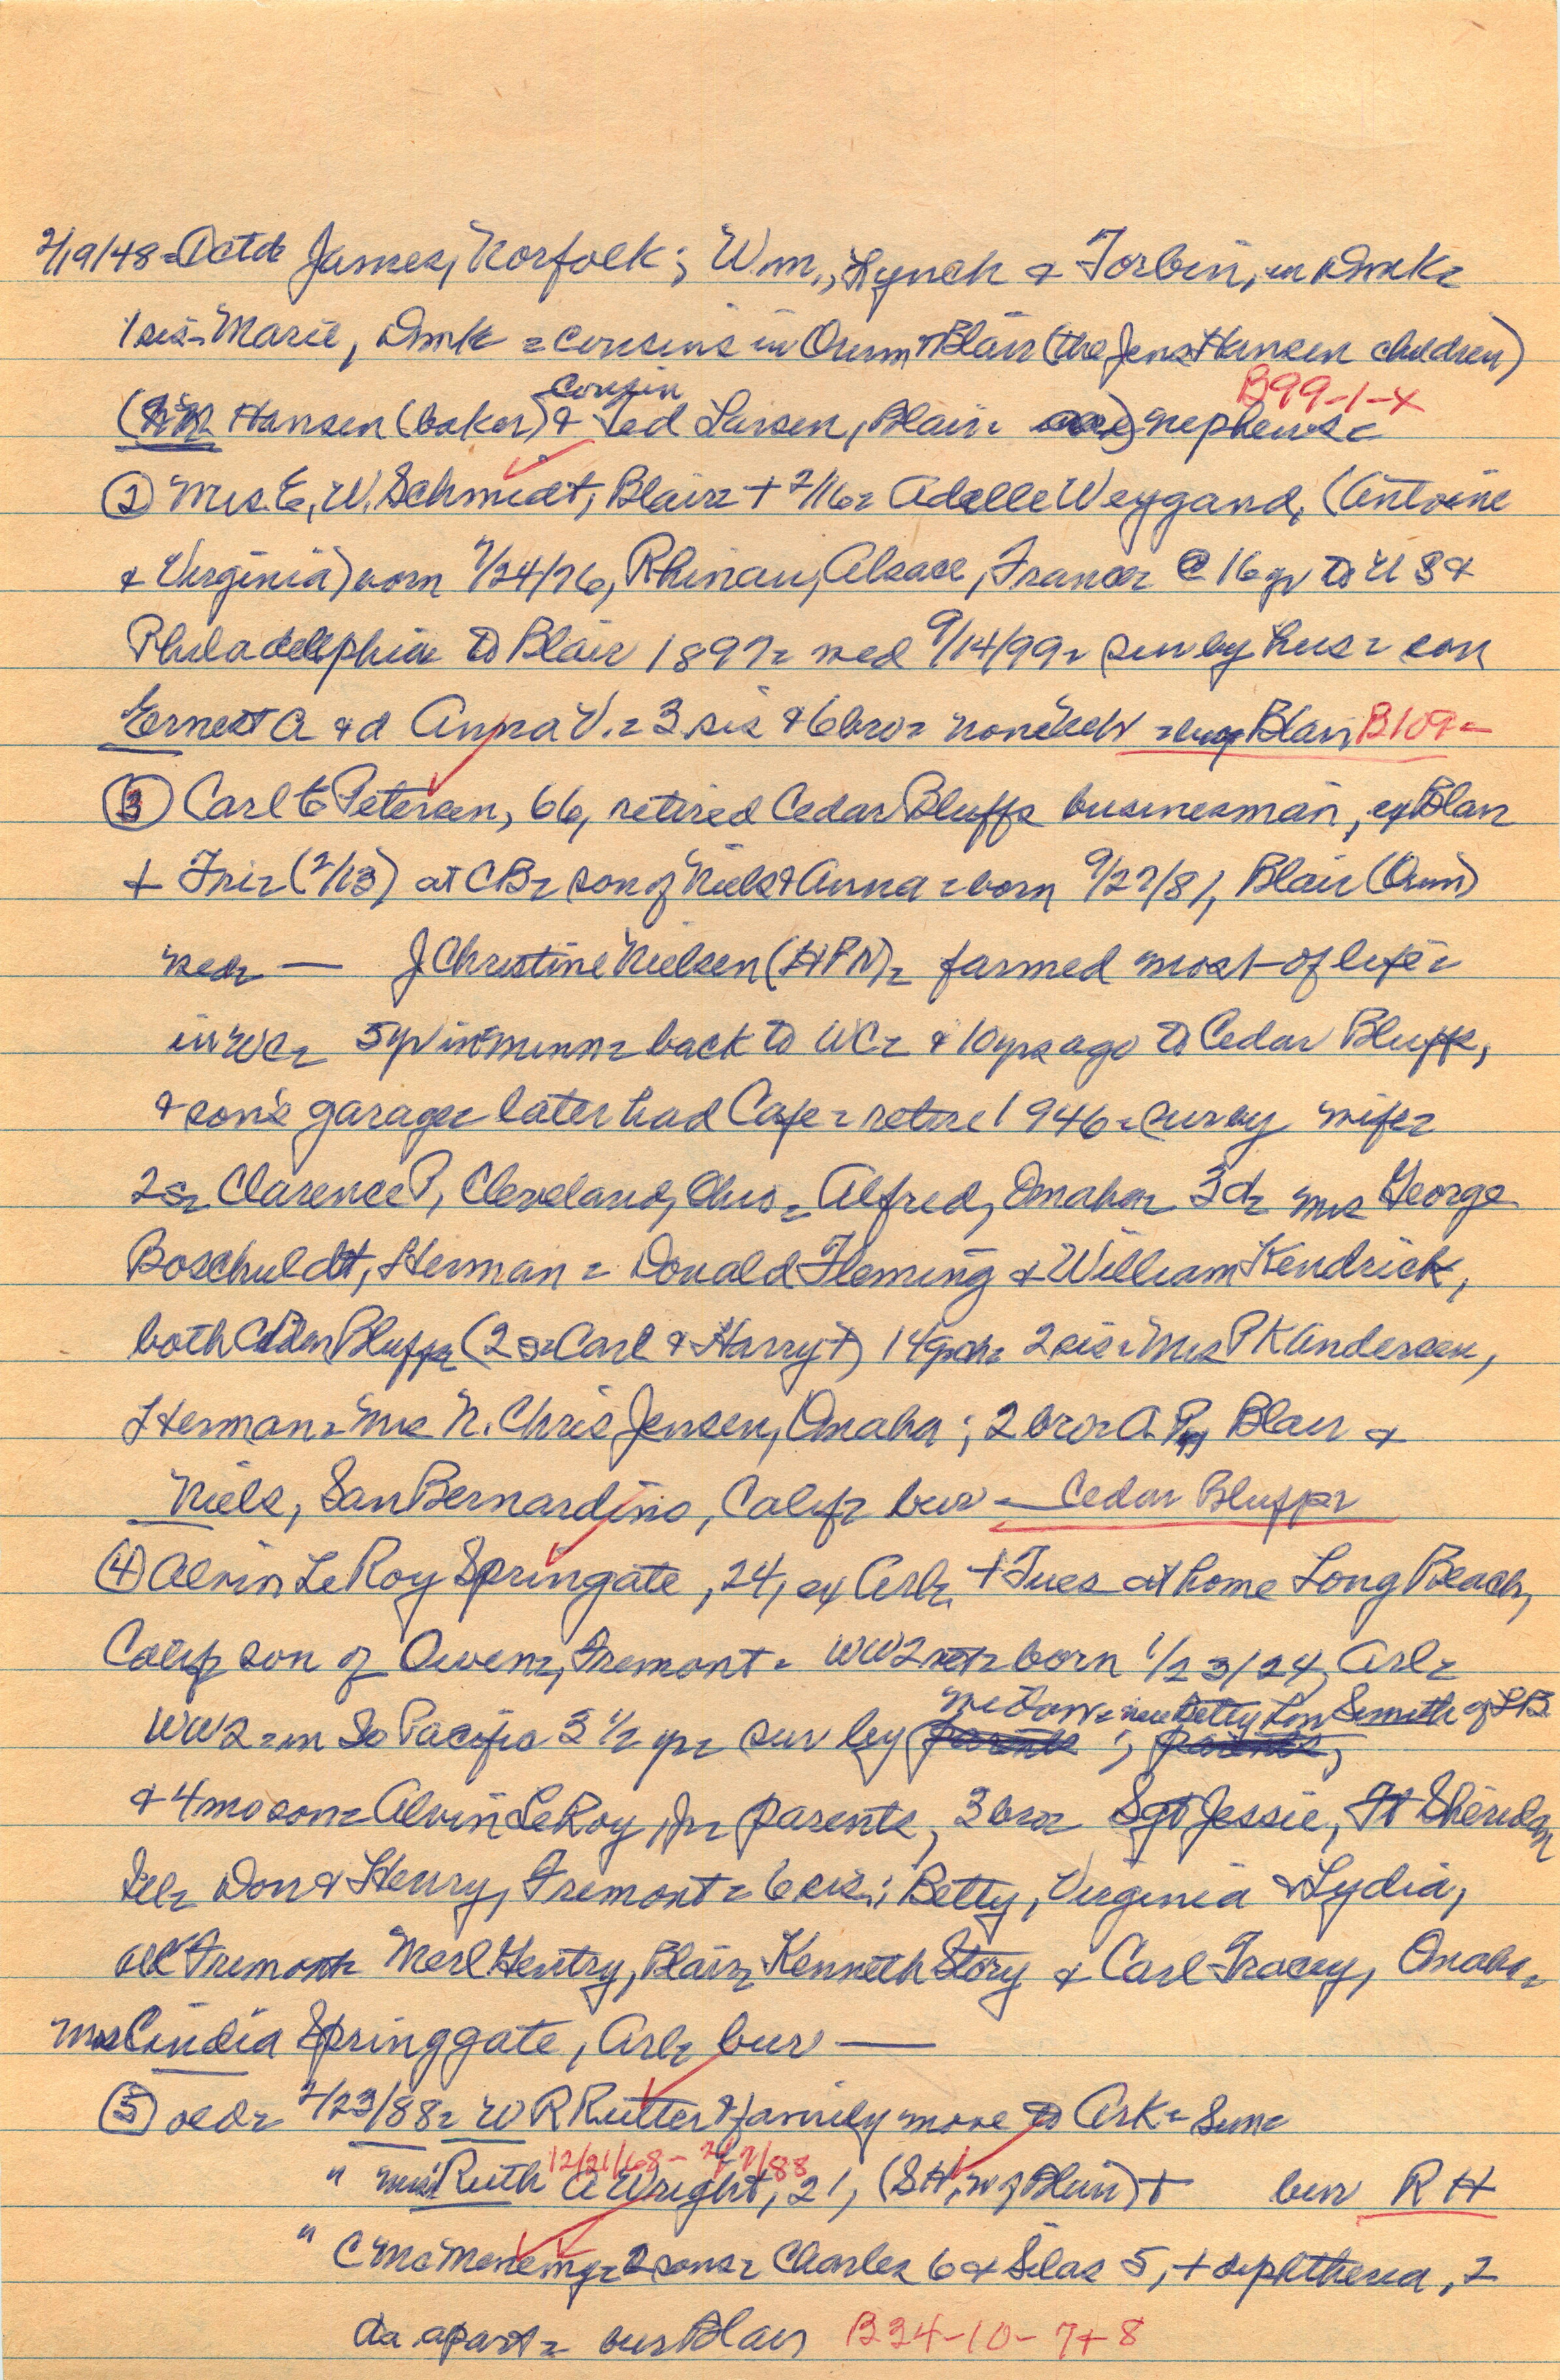 2/19/48 = Cctd James, Norfolk; Wm., Lynch & Torbin, in Dmk =
1 sis = Marie, Dmk = cousins in Orum & Blair (the Jens Hansen children)
Hansen (baker) & cousin Ted Larsen, Blair = nephews = B99-1-x
② Mrs. E. W. Schmidt, Blair = + 2/16 = Adelle Weygand, (Antoine
& Virginia) born 7/24/76, Rhinau, Alsace, France @ 16 yr to US &
Philadellphia to Blair 1897 = wed 9/14/99 = sur by hus = son
Ernest A & d Anna V. = 3 sis & 6 bro = = bur Blair B109 =
③ Carl E Petersen, 66, retired Cedar Bluffs businesman, ex Blair
+ Fri = (2/13) at CB = son of Niels & Anna = born 9/27/81, Blair (Orum)
wed = — J Christine Nielsen (HPN) = farmed most of life =
in WC = 5 yr in Minn = back to WC = & 10 yrs ago to Cedar Bluffs,
& son's garage = later had Cafe = retire 1946 = sur by wife =
2 s = Clarence P, Cleveland, Ohio = Alfred, Omaha = 3 d = Mrs George
Boschuldt, Herman = Donald Fleming & William Kendrick,
both Cedar Bluffs (2 s = Carl & Harry +) 14 gch = 2 sis = Mrs P K Andersen,
Herman = Mrs N. Chris Jensen, Omaha; 2 bro = A P, Blair &
Niels, San Bernardino, Calif = bur = Cedar Bluffs
④ Alvin LeRoy Springate, 24, ex Arl = + Tues at home Long Beach,
Calif son of Owen =, Fremont = WW2 vet = born 1/23/24, Arl =
WW2 = in So Pacific 3 ½ yr = sur by widow = nee Betty Lou Smith of LB
& 4 mo son = Alvin LeRoy, Jr = parents, 3 bro = Sgt Jessie, Ft Sheridan
Ill = Don & Henry, Fremont = 6 sis: Betty, Virginia & Lydia,
all Fremont = Merl Gentry, Blair = Kenneth Story & Carl Tracey, Omaha =
Mrs Cindia Springgate, Arl = bur —
⑤ old = 2/23/88 = W R Rutter & family move to Ark = Sun =
" Mrs Ruth A Wright, 21, (SH, w of Blair) + bur RH
12/21/68 - 2/ /88
" C McMenemy = 2 sons = Charles 6 & Silas 5, + diphtheria, 2
da apart = bur Blair B24-10-7+8